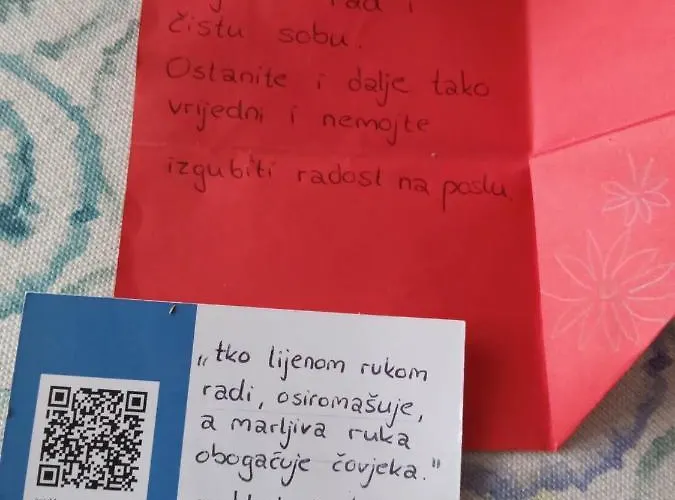 rad i
čistu sobu.
Ostanite i dalje tako
vrijedni i nemojte
izgubiti radost na poslu.
„tko lijenom rukom
radi, osiromašuje,
a marljiva ruka
obogaćuje čovjeka."